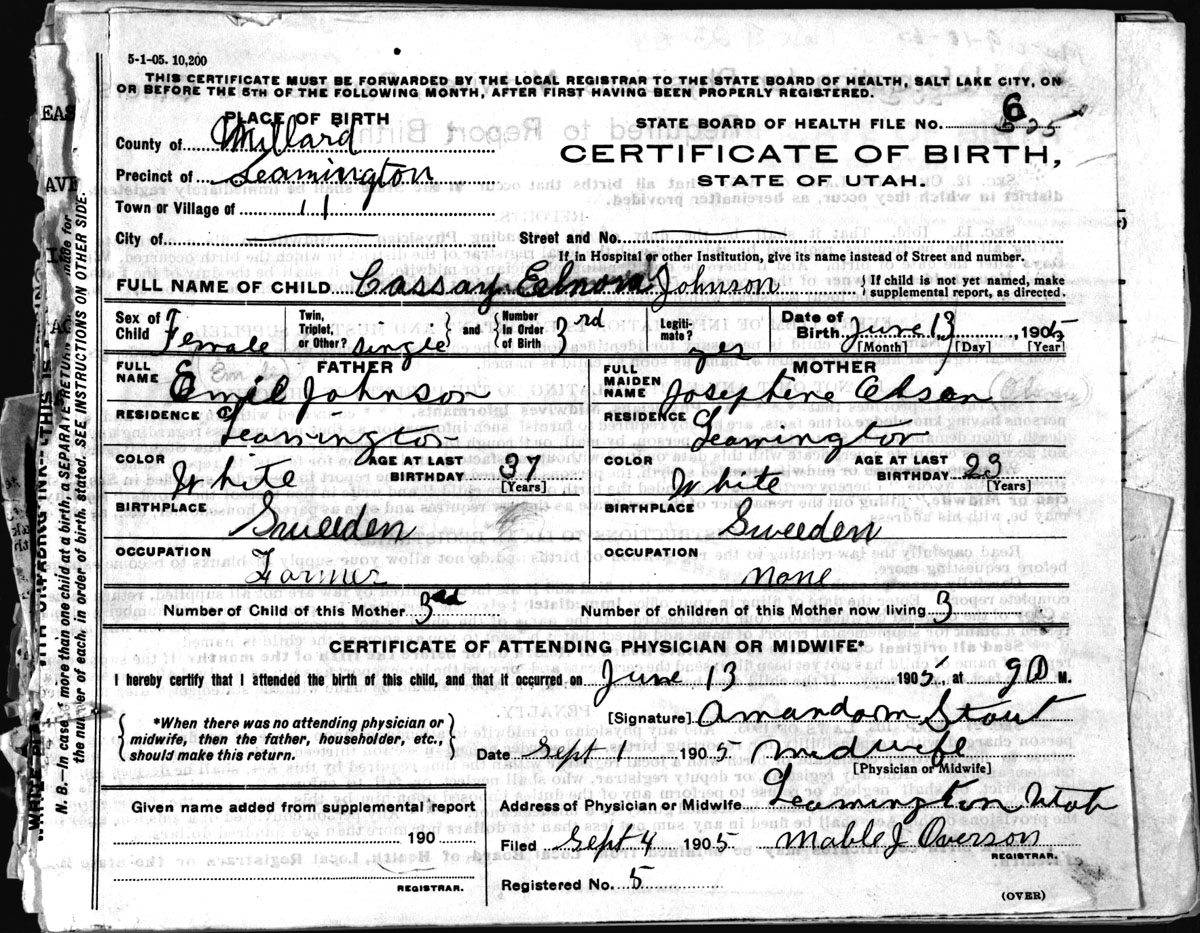 5-1-05. 10,200
THIS CERTIFICATE MUST BE FORWARDED BY THE LOCAL REGISTRAR TO THE STATE BOARD OF HEALTH, SALT LAKE CITY, ON
OR BEFORE THE 5TH OF THE FOLLOWING MONTH, AFTER FIRST HAVING BEEN PROPERLY REGISTERED.
PLACE OF BIRTH
County of Millard
Precinct of Leamington
Town or Village of 11
City of
STATE BOARD OF HEALTH FILE NO. 6
CERTIFICATE OF BIRTH,
STATE OF UTAH.
Street and No.
If in Hospital or other Institution, give its name instead of Street and number.
FULL NAME OF CHILD Cassay Johnson { If child is not yet named, make supplemental report, as directed.
Sex of Child Female Twin, Triplet, or Other? single } and { Number in Order of Birth 3rd Legitimate? yes Date of Birth June 13, 1905
[Month] [Day] [Year]
FATHER
FULL NAME Emil Johnson
MOTHER
FULL MAIDEN NAME Josephene
RESIDENCE Leamington
RESIDENCE Leamington
COLOR White AGE AT LAST BIRTHDAY 37 [Years]
COLOR White AGE AT LAST BIRTHDAY 23 (Years)
BIRTHPLACE Sweeden
BIRTHPLACE Sweeden
OCCUPATION Farmer
OCCUPATION none
Number of Child of this Mother 3rd Number of children of this Mother now living 3
CERTIFICATE OF ATTENDING PHYSICIAN OR MIDWIFE*
I hereby certify that I attended the birth of this child, and that it occurred on June 13 1905, at 9 M.
{ *When there was no attending physician or midwife, then the father, householder, etc., should make this return. }
[Signature] Amanda M Stout
Date Sept 1 1905 Midwife
[Physician or Midwife]
Given name added from supplemental report
190
REGISTRAR.
Address of Physician or Midwife Leamington Utah
Filed Sept 4 1905 Mable J Overson
REGISTRAR.
Registered No. 5
(OVER)
N. B.—In case of more than one child at a birth, a SEPARATE RETURN made for
the number of each, in order of birth, stated. SEE INSTRUCTIONS ON OTHER SIDE.